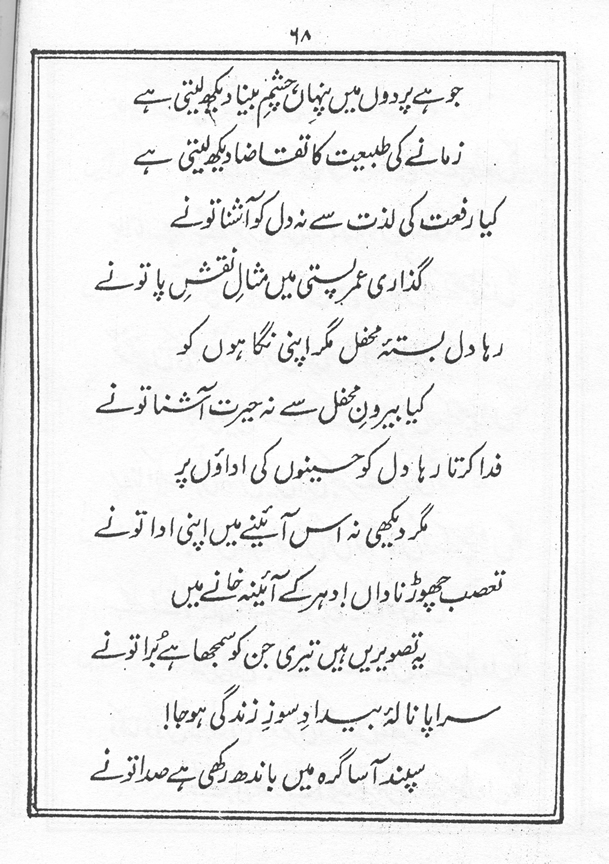 ۶۸
جو ہے پردوں میں پنہاں، چشمِ بینا دیکھ لیتی ہے
زمانے کی طبیعت کا تقاضا دیکھ لیتی ہے
کیا رفعت کی لذت سے نہ دل کو آشنا تو نے
گذاری عمر پستی میں مثالِ نقشِ پا تو نے
رہا دل بستۂ محفل مگر اپنی نگاہوں کو
کیا بیرونِ محفل سے نہ حیرت آشنا تو نے
فدا کرتا رہا دل کو حسینوں کی اداؤں پر
مگر دیکھی نہ اس آئینے میں اپنی ادا تو نے
تعصب چھوڑ ناداں! دہر کے آئینہ خانے میں
یہ تصویریں ہیں تیری جن کو سمجھا ہے بُرا تو نے
سراپا نالۂ بیدادِ سوزِ زندگی ہو جا!
سپند آسا گرہ میں باندھ رکھی ہے صدا تو نے